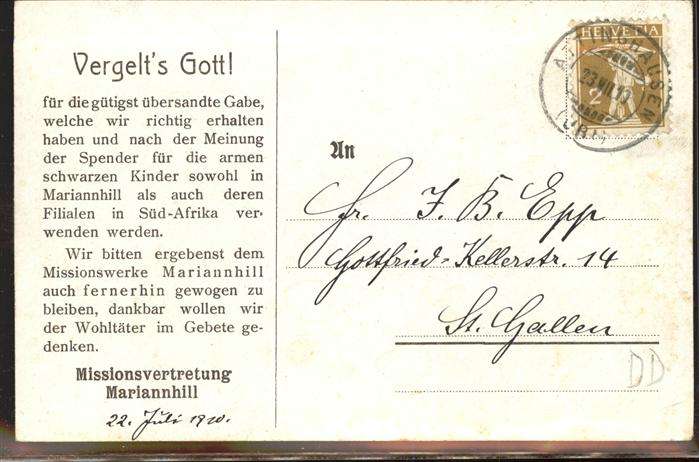 Vergelt's Gott!
für die gütigst übersandte Gabe,
welche wir richtig erhalten
haben und nach der Meinung
der Spender für die armen
schwarzen Kinder sowohl in
Mariannhill als auch deren
Filialen in Süd-Afrika ver-
wenden werden.
Wir bitten ergebenst dem
Missionswerke Mariannhill
auch fernerhin gewogen zu
bleiben, dankbar wollen wir
der Wohltäter im Gebete ge-
denken.
Missionsvertretung
Mariannhill
22. Juli 1910.
HELVETIA
2
ATTINGHAUSEN
23.VII.10
(URI)
An
Fr. J. B. Epp
Gottfried-Kellerstr. 14
St. Gallen
DD